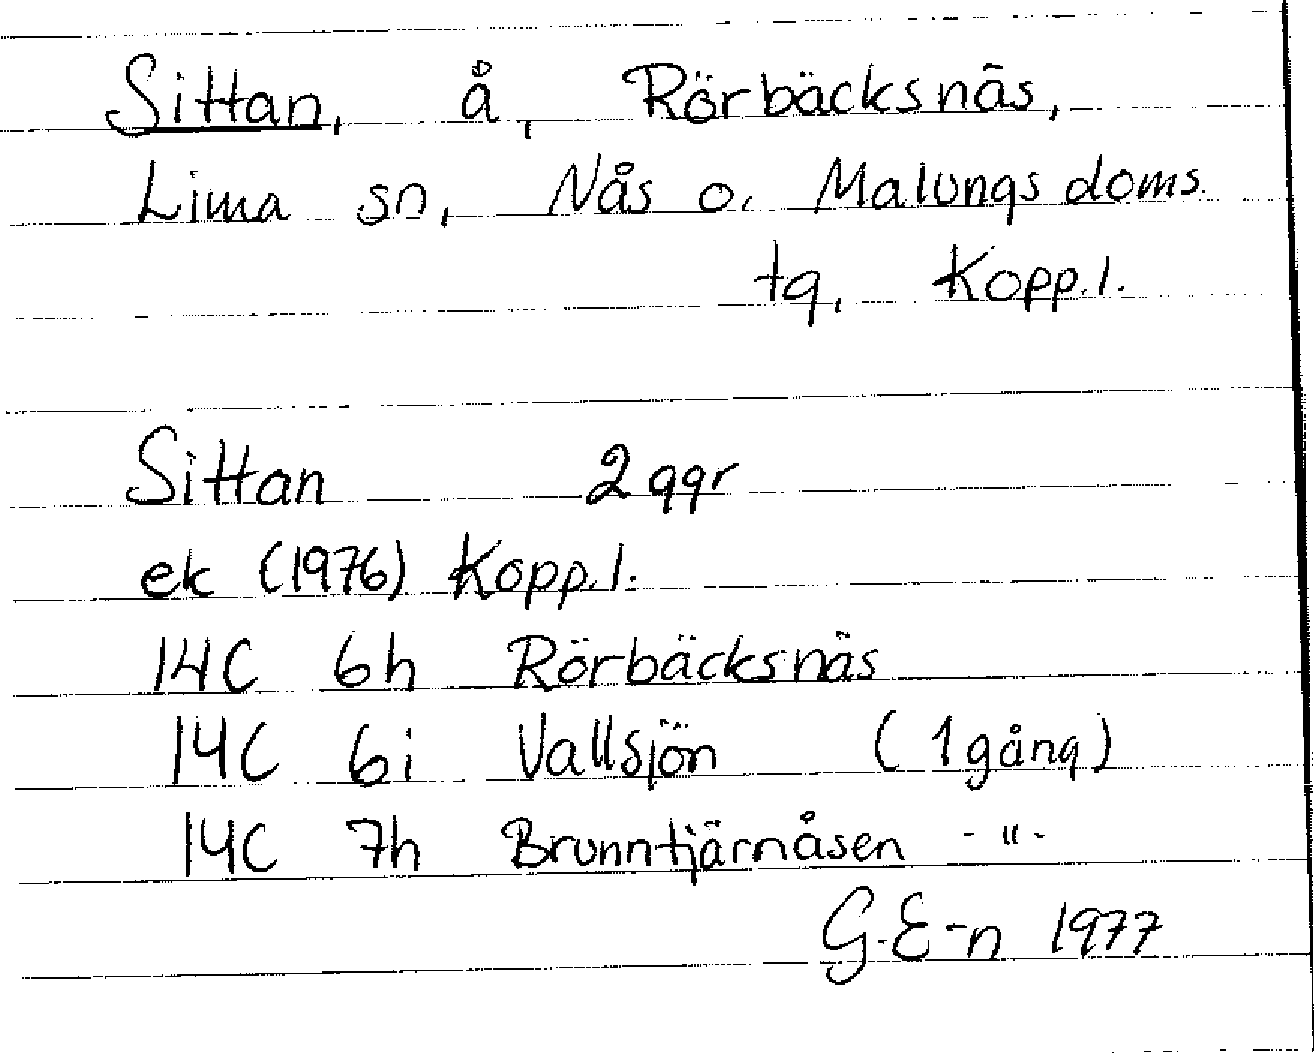 Sittan, å, Rörbäcksnäs,
Lima sn, Nås o. Malungs doms.
tg, Kopp.l.
Sittan 2 ggr
ek (1976) Kopp.l.
14C 6h Rörbäcksnäs
14C 6i Vallsjön (1 gång)
14C 7h Brunntjärnåsen -"-
G.E-n 1977